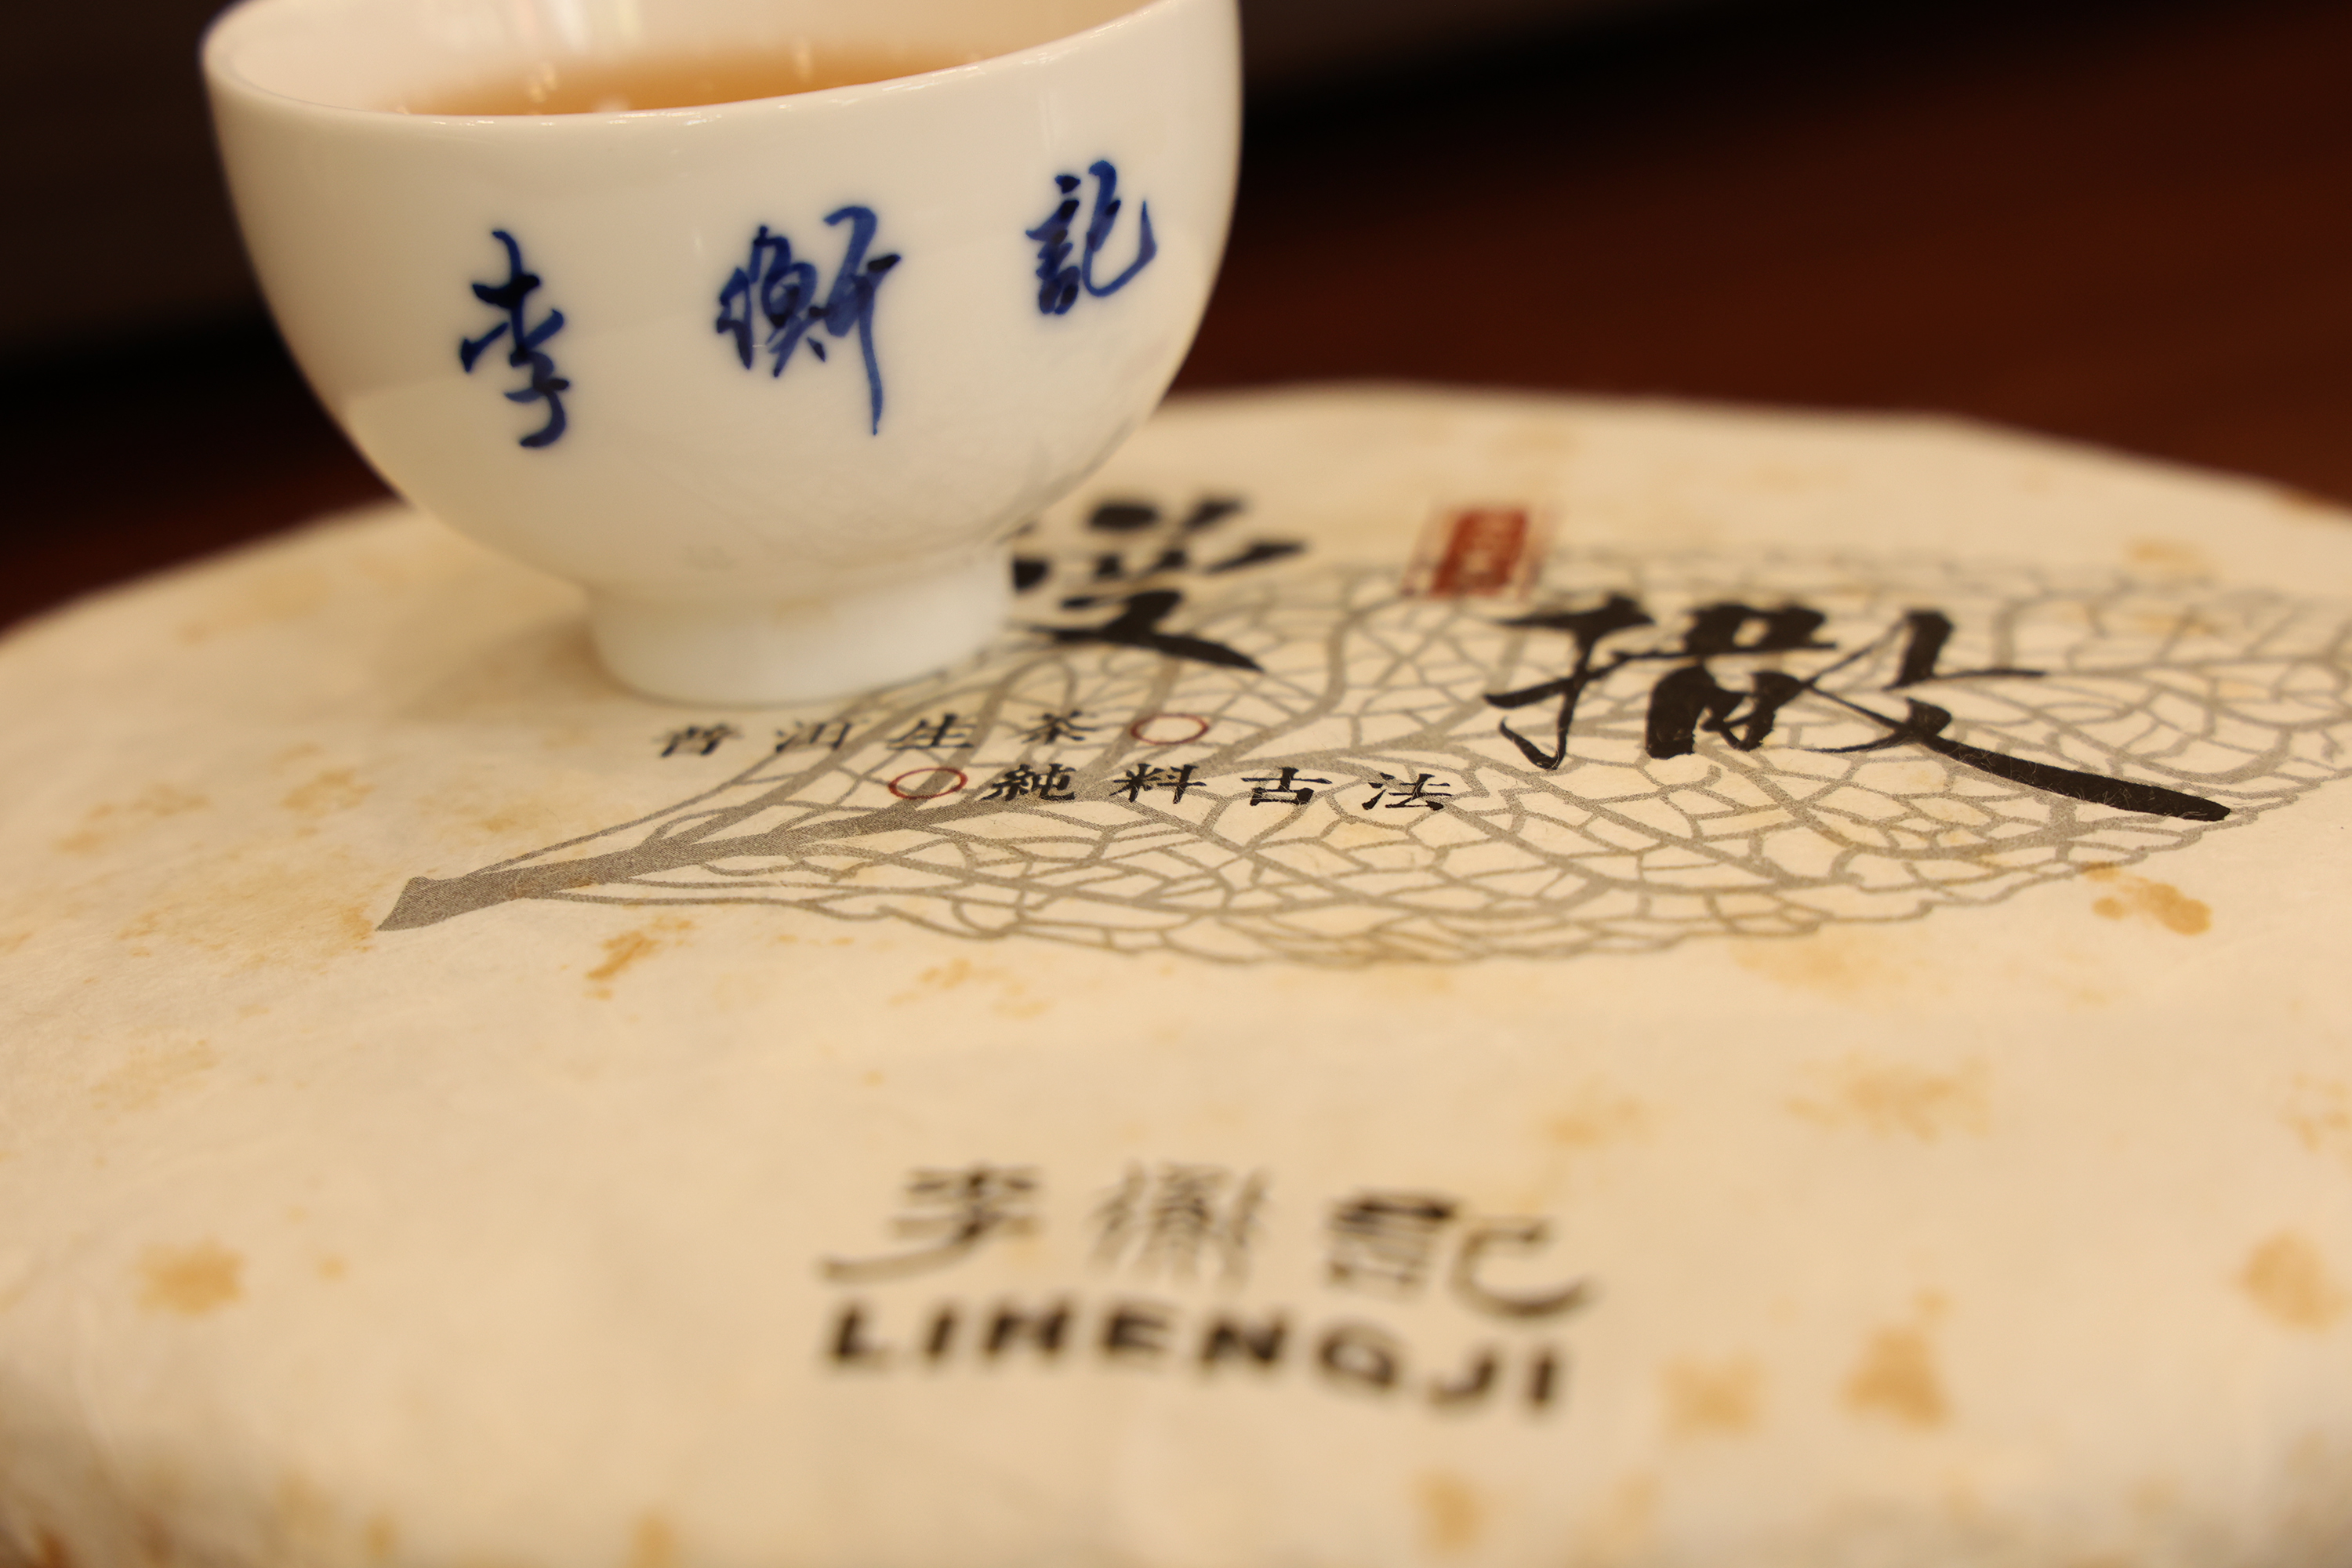 李衡記
撒
普洱生茶
純料古法
李衡記
LIHENGJI